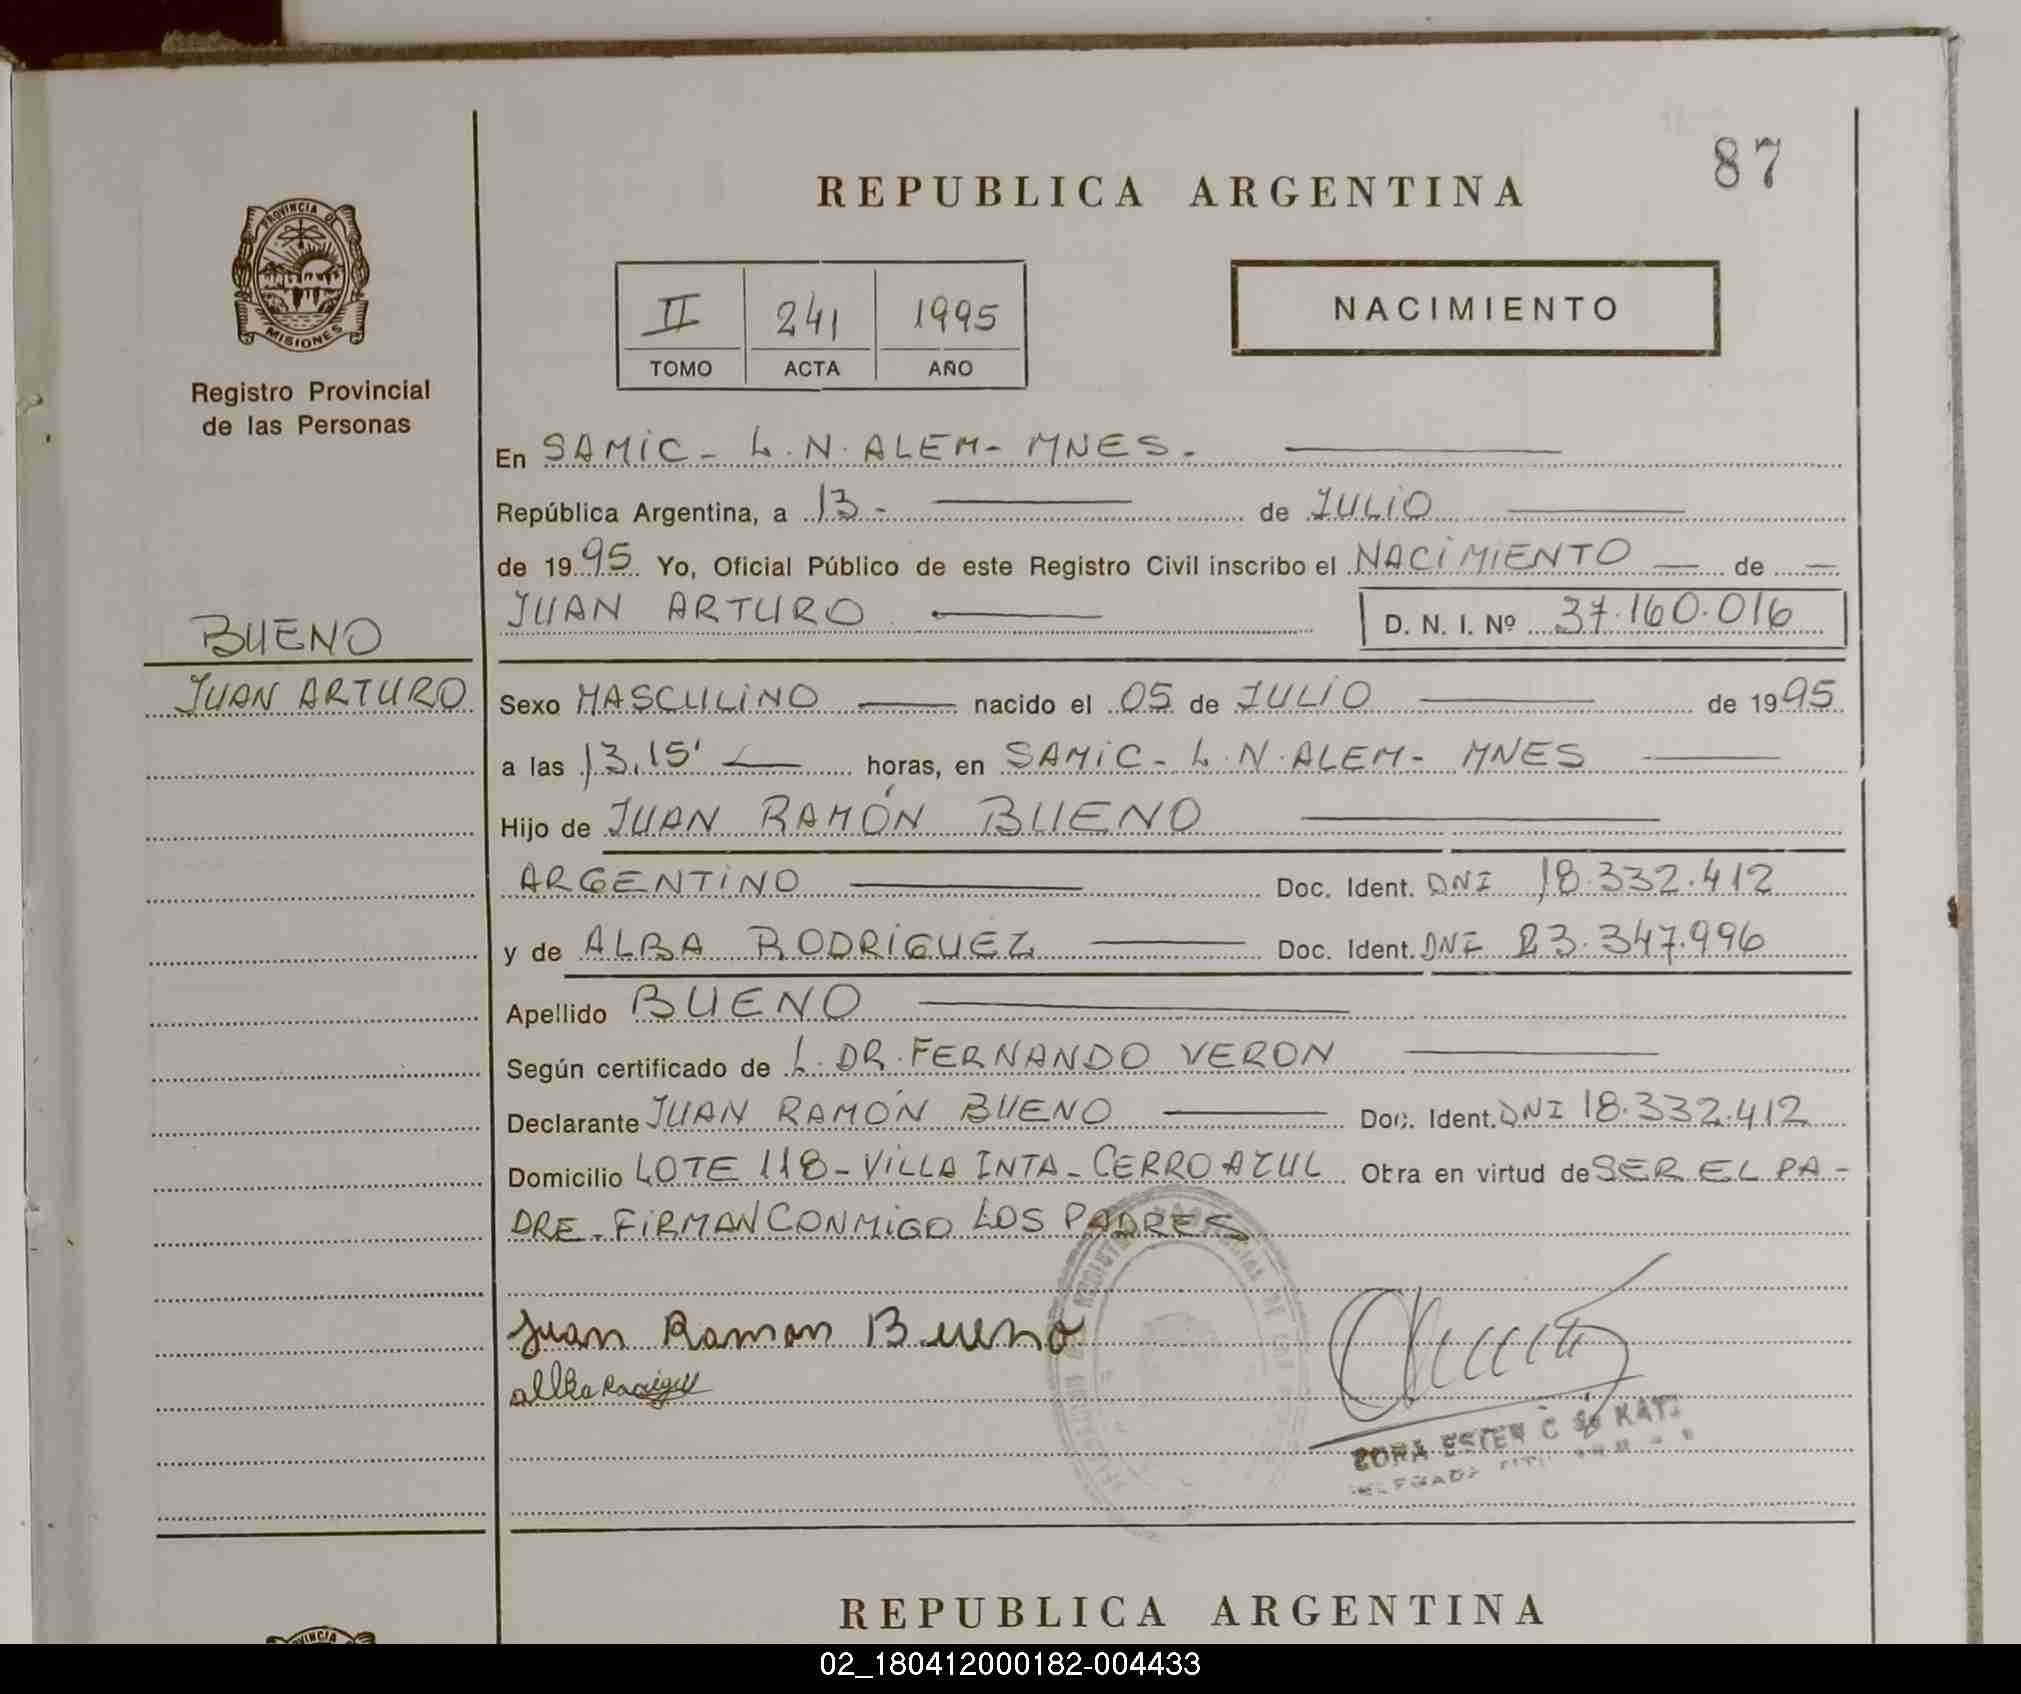 87
REPUBLICA ARGENTINA
PROVINCIA DE
MISIONES
Registro Provincial
de las Personas
II 241 1995
TOMO ACTA AÑO
NACIMIENTO
En SAMIC - L. N. ALEM - MNES.
República Argentina, a 13 - de JULIO
de 1995 Yo, Oficial Público de este Registro Civil inscribo el NACIMIENTO de
JUAN ARTURO D. N. I. Nº 37.160.016
BUENO
JUAN ARTURO
Sexo MASCULINO nacido el 05 de JULIO de 1995
a las 13,15' horas, en SAMIC - L. N. ALEM - MNES
Hijo de JUAN RAMÓN BUENO
ARGENTINO Doc. Ident. DNI 18.332.412
y de ALBA RODRIGUEZ Doc. Ident. DNI 23.347.996
Apellido BUENO
Según certificado de L. DR. FERNANDO VERON
Declarante JUAN RAMÓN BUENO Doc. Ident. DNI 18.332.412
Domicilio LOTE 118 - VILLA INTA - CERRO AZUL Obra en virtud de SER EL PA-
DRE. FIRMAN CONMIGO LOS PADRES
Juan Ramon Bueno
REPUBLICA ARGENTINA
PROVINCIA
02_180412000182-004433